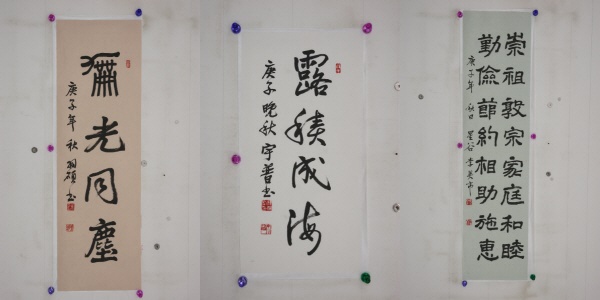 光同塵
庚子年秋
露積成海
庚子晚秋宇普书
崇祖敦宗家庭和睦
勤儉節約相助施惠
庚子年秋日星谷李